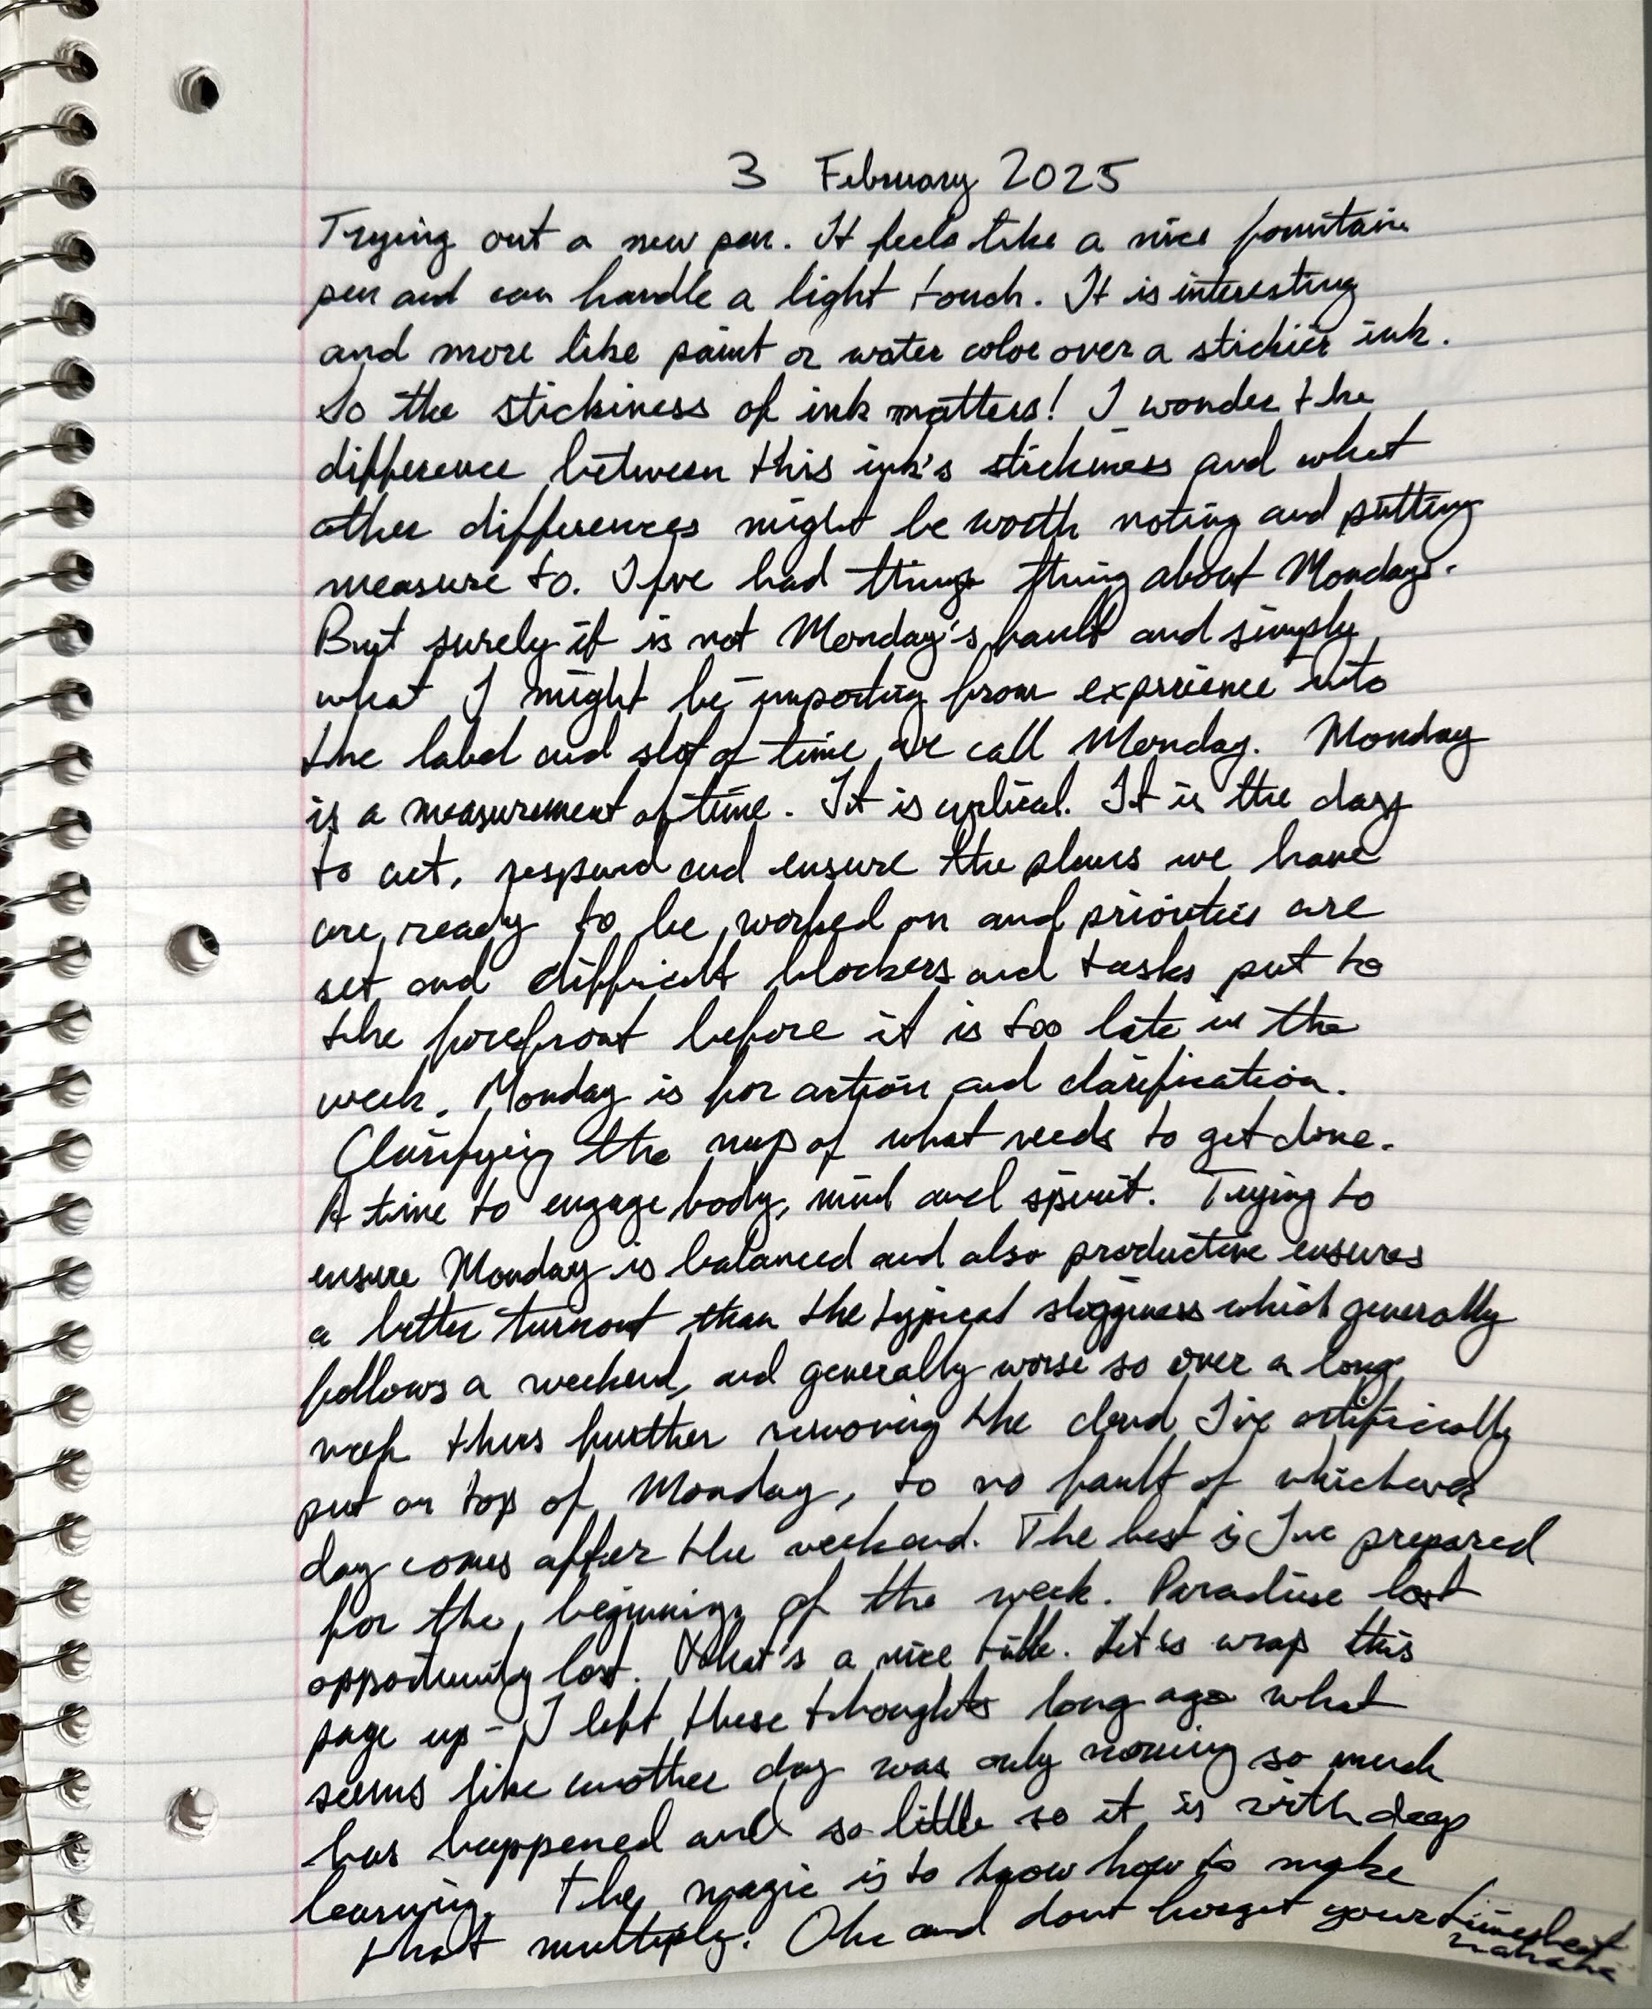 3 February 2025
Trying out a new pen. It feels like a nice fountain
pen and can handle a light touch. It is interesting
and more like paint or water color over a stickier ink.
So the stickiness of ink matters! I wonder the
difference between this ink's stickiness and what
other differences might be worth noting and putting
measure to. I've had things thing about Mondays.
But surely it is not Monday's fault and simply
what I might be importing from experience into
the label and slot of time we call Monday. Monday
is a measurement of time. It is cyclical. It is the day
to act, respond and ensure the plans we have
are ready to be worked on and priorities are
set and difficult blockers and tasks put to
the forefront before it is too late in the
week. Monday is for action and clarification.
Clarifying the map of what needs to get done.
A time to engage body, mind and spirit. Trying to
ensure Monday is balanced and also productive ensures
a better turnout than the typical slogginess which generally
follows a weekend, and generally worse so over a long
week thus further removing the cloud I've artificially
put on top of Monday, to no fault of whichever
day comes after the weekend. The best is I've prepared
for the beginning of the week. Paradise lost
opportunity lost. What's a nice title. Let's wrap this
page up - I left these thoughts long ago what
seems like another day was only morning so much
has happened and so little so it is with deep
learning. The magic is to know how to make
that multiply. Oh and dont forget your timesheet
hahaha